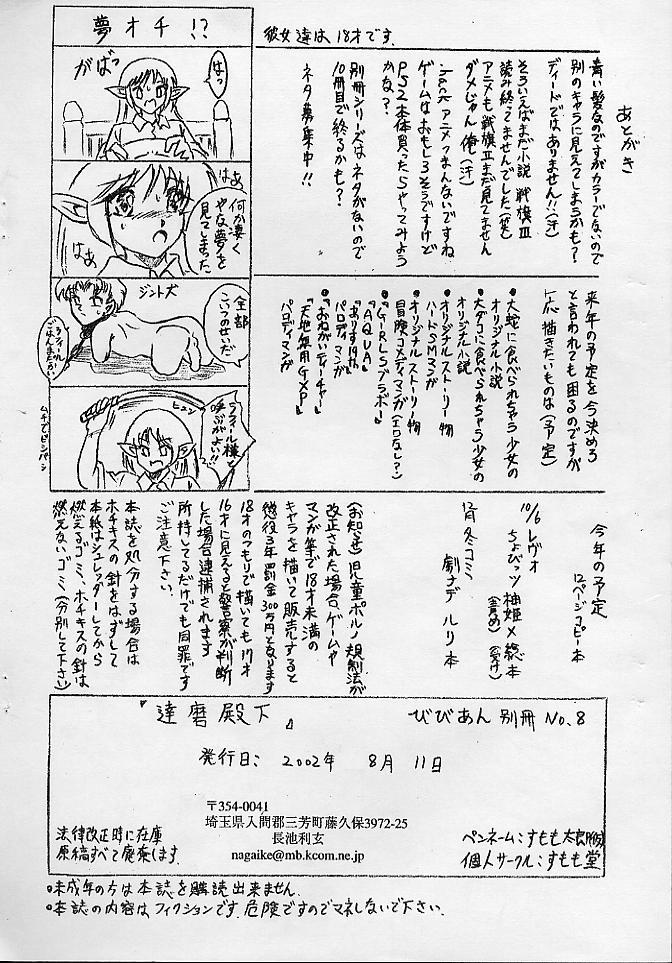 夢オチ !?
がばっ
はっ
はぁ
何か凄く
やな夢を
見てしまった
はぁ
ジント犬
全部
こいつのせいだ
ラフィール様と
呼ぶがよい!!
ヒュン
ムチでピシパシ
彼女達は18才です.
あとがき
青い髪なのですがカラーでないので
別のキャラに見えてしまうかも?
ディードではありません!!(汗)
そういえばまだ小説 戦旗Ⅲ
読み終ってませんでした(笑)
アニメも戦旗Ⅱまだ見てません
ダメじゃん 俺(汗)
.hack アニメつまんないですね
ゲームはおもしろそうですけど
PS2本体買ったらやってみよう
かな?
別冊シリーズはネタがないので
10冊目で終るかも?
ネタ募集中!!
来年の予定を今決めろ
と言われても困るのですが
一応描きたいものは(予定)
•大蛇に食べられちゃう少女の
オリジナル小説
•大ダコに食べられちゃう少女の
オリジナル小説
•オリジナルストーリー物
ハードSMマンガ
•オリジナルストーリー物
冒険コメディマンガ(エロなし?)
•『GIRLSブラボー』
『AQUA』
『ありす19th』
パロディマンガ
•『おねがいティーチャー』
『天地無用GXP』
パロディマンガ
今年の予定
12ページコピー本
10/6 レヴォ
ちょびッツ 柚姫×総本
(責め) (受け)
12月冬コミ
劇ナデルリ本
(お知らせ)児童ポルノ規制法が
改正された場合、ゲームや
マンガ等で18才未満の
キャラを描いて販売すると
懲役3年罰金300万円となります
18才のつもりで描いても17才
16才に見えると警察が判断
した場合逮捕されます
所持してるだけでも同罪です
ご注意下さい.
本誌を処分する場合は
ホチキスの針をはずして
本紙はシュレッダーしてから
燃えるゴミ、ホチキスの針は
燃えないゴミ(分別して下さい)
『達磨殿下』
びびあん 別冊 No.8
発行日: 2002年 8月 11日
〒354-0041
埼玉県入間郡三芳町藤久保3972-25
長池利玄
nagaike@mb.kcom.ne.jp
法律改正時に在庫
原稿すべて廃棄します.
ペンネーム:すもも太郎(仮)
個人サークル:すもも堂
○未成年の方は本誌を購読出来ません.
○本誌の内容はフィクションです.危険ですのでマネしないで下さい.